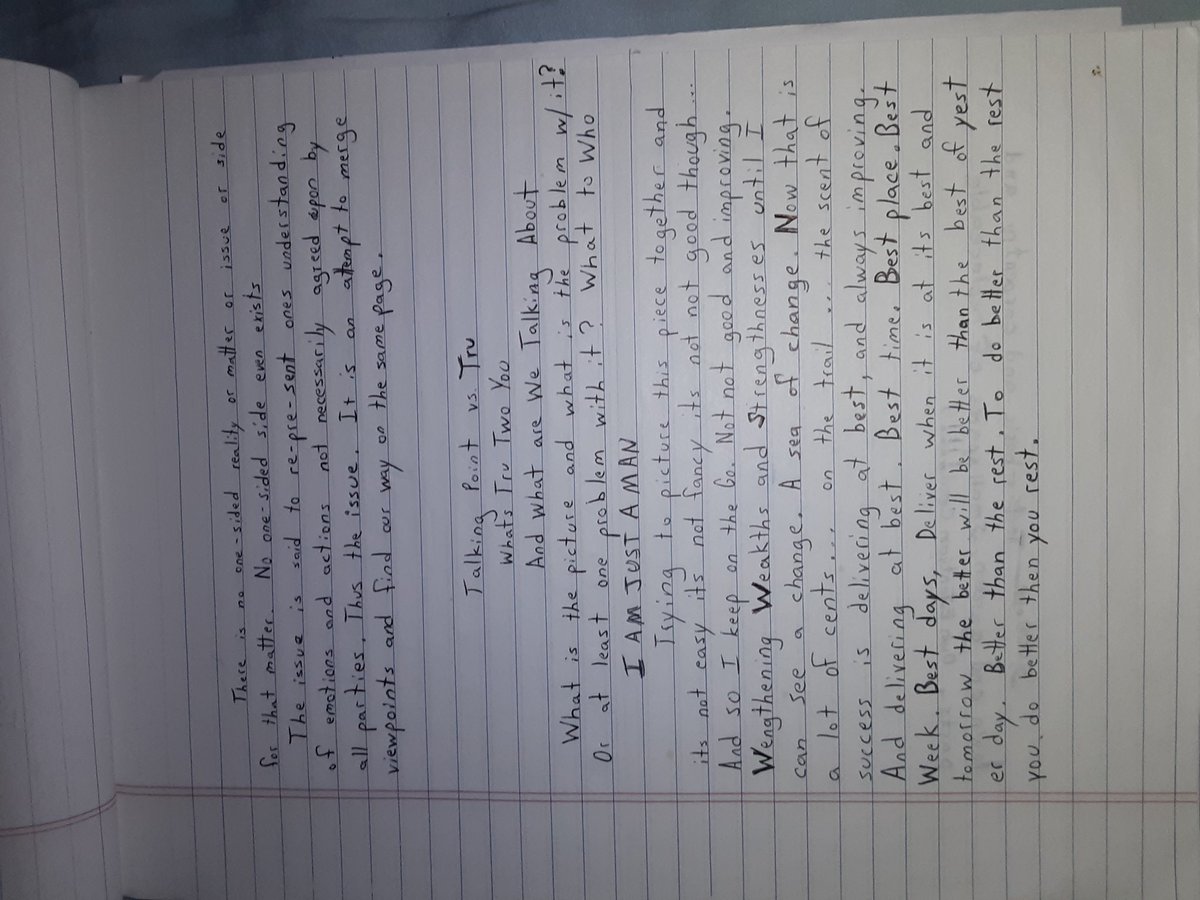 There is no one-sided reality or matter or issue or side
for that matter. No one-sided side even exists
The issue is said to re-pre-sent ones understanding
of emotions and actions not necessarily agreed upon by
all parties. Thus the issue. It is an attempt to merge
viewpoints and find our way on the same page.
Talking Point vs. Tru
Whats Tru Two You
And What are We Talking About
What is the picture and what is the problem w/it?
Or at least one problem with it? What to Who
I AM JUST A MAN
Trying to picture this piece together and
its not easy its not fancy its not not good though...
And so I keep on the Go. Not not good and improving.
Wengthening Weakths and Strengthnesses until I
can see a change. A sea of change. Now that is
a lot of cents.... on the trail .... the scent of
success is delivering at best, and always improving.
And delivering at best. Best time. Best place. Best
Week. Best days, Deliver when it is at its best and
tomorrow the better will be better than the best of yest
er day. Better than the rest. To do better than the rest
you do better then you rest.